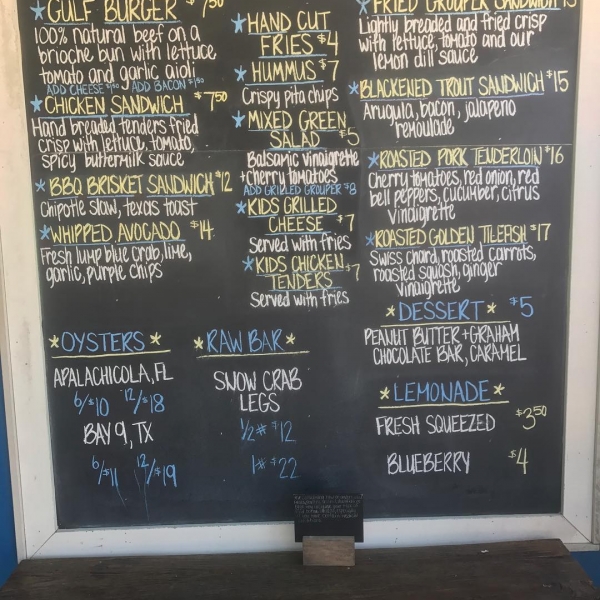 *GULF BURGER $7.50
100% natural beef on a
brioche bun with lettuce,
tomato and garlic aioli
ADD CHEESE ADD BACON
*CHICKEN SANDWICH $7.50
Hand breaded tenders fried
crisp with lettuce, tomato,
spicy buttermilk sauce
*BBQ BRISKET SANDWICH $12
Chipotle slaw, texas toast
*WHIPPED AVOCADO $14
Fresh lump blue crab, lime,
garlic, purple chips
*HAND CUT
FRIES $4
*HUMMUS $7
Crispy pita chips
*MIXED GREEN
SALAD $5
Balsamic vinaigrette
+cherry tomatoes
ADD GRILLED GROUPER $8
*KIDS GRILLED
CHEESE $7
Served with fries
*KIDS CHICKEN
TENDERS $7
Served with fries
*FRIED GROUPER SANDWICH
Lightly breaded and fried crisp
with lettuce, tomato and our
lemon dill sauce
*BLACKENED TROUT SANDWICH $15
Arugula, bacon, jalapeno
remoulade
*ROASTED PORK TENDERLOIN $16
Cherry tomatoes, red onion, red
bell peppers, cucumber, citrus
vinaigrette
*ROASTED GOLDEN TILEFISH $17
Swiss chard, roasted carrots,
roasted squash, ginger
vinaigrette
*DESSERT* $5
PEANUT BUTTER + GRAHAM
CHOCOLATE BAR, CARAMEL
*LEMONADE*
FRESH SQUEEZED $3.50
BLUEBERRY $4
*OYSTERS*
APALACHICOLA, FL
6/$10 12/$18
BAY 9, TX
6/$11 12/$19
*RAW BAR*
SNOW CRAB
LEGS
1/2# $12
1# $22